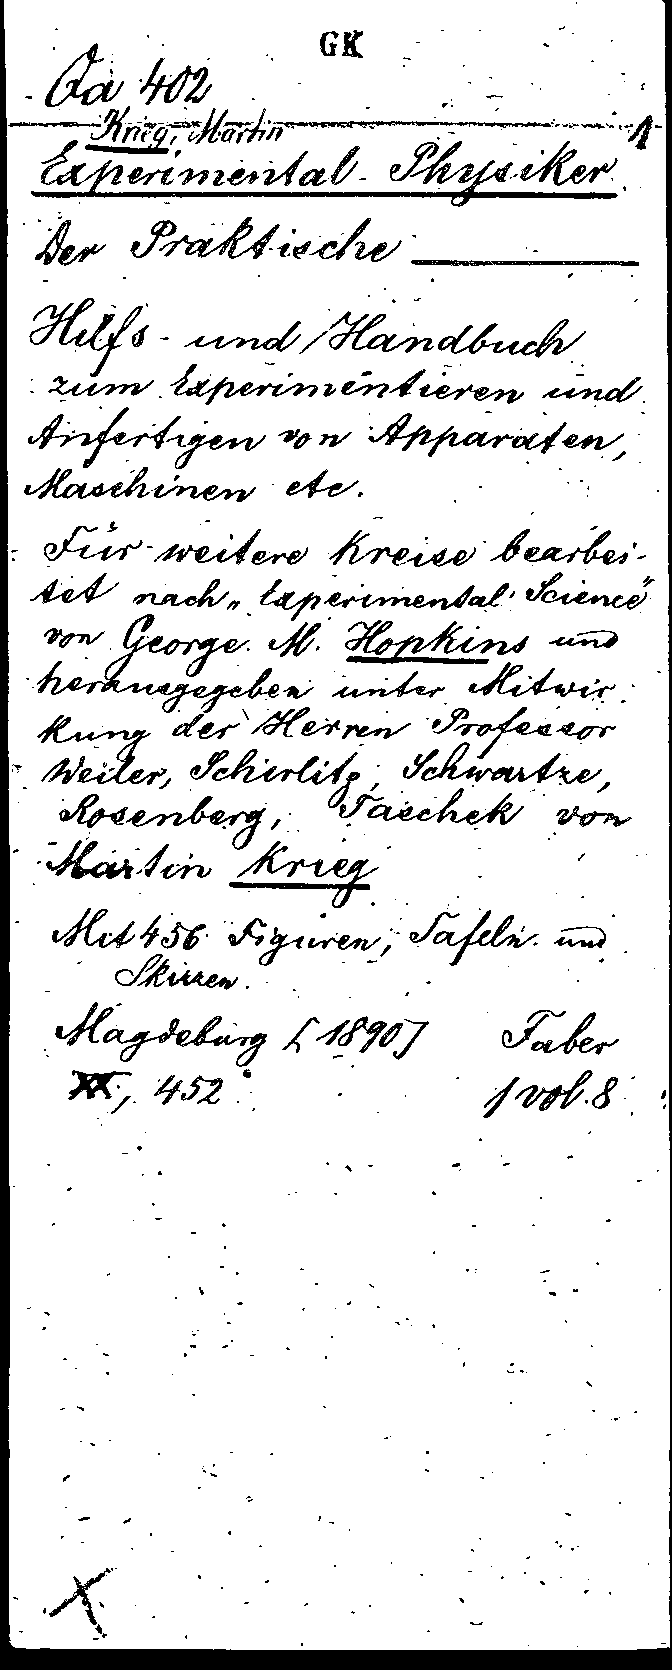 GK
Oa 402
Krieg, Martin
1
Experimental-Physiker.
Der Praktische ———
Hilfs- und Handbuch
zum Experimentieren und
Anfertigen von Apparaten,
Maschinen etc.
Für weitere Kreise bearbei-
tet nach „Experimental Science"
von George. M. Hopkins und
herausgegeben unter Mitwir-
kung der Herren Professor
Weiler, Schirlitz, Schwartze,
Rosenberg, Taschek von
Martin Krieg
Mit 456 Figuren, Tafeln und
Skizzen.
Magdeburg [1890] Faber
XX, 452 1 vol. 8°